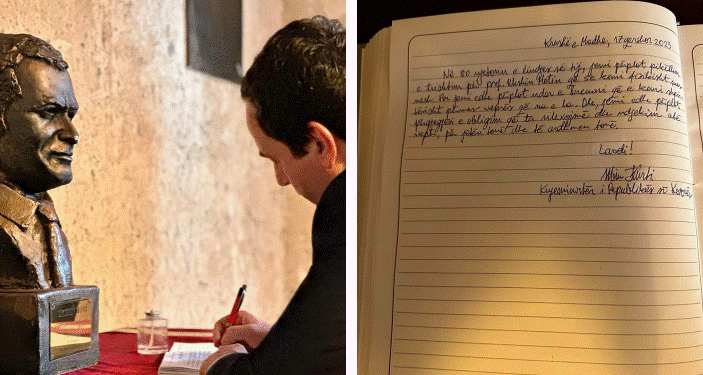 Krushë e Madhe, 17 qershor 2023
Në 80 vjetorin e lindjes së tij, jemi plotplot pikëllim
e trishtim për prof. Ukshin Hotin që s'e kemi fizikisht mes
nesh. Por jemi edhe plotplot nder e krenari që e kemi
përmes veprës që na e la. Dhe, jemi edhe plotplot
përgjegjësi e obligim që ta vlerësojmë dhe ndjekim atë
vepër, për jetën tonë dhe të ardhmen tonë.
Lavdi!
Albin Kurti
Kryeministër i Republikës së Kosovës